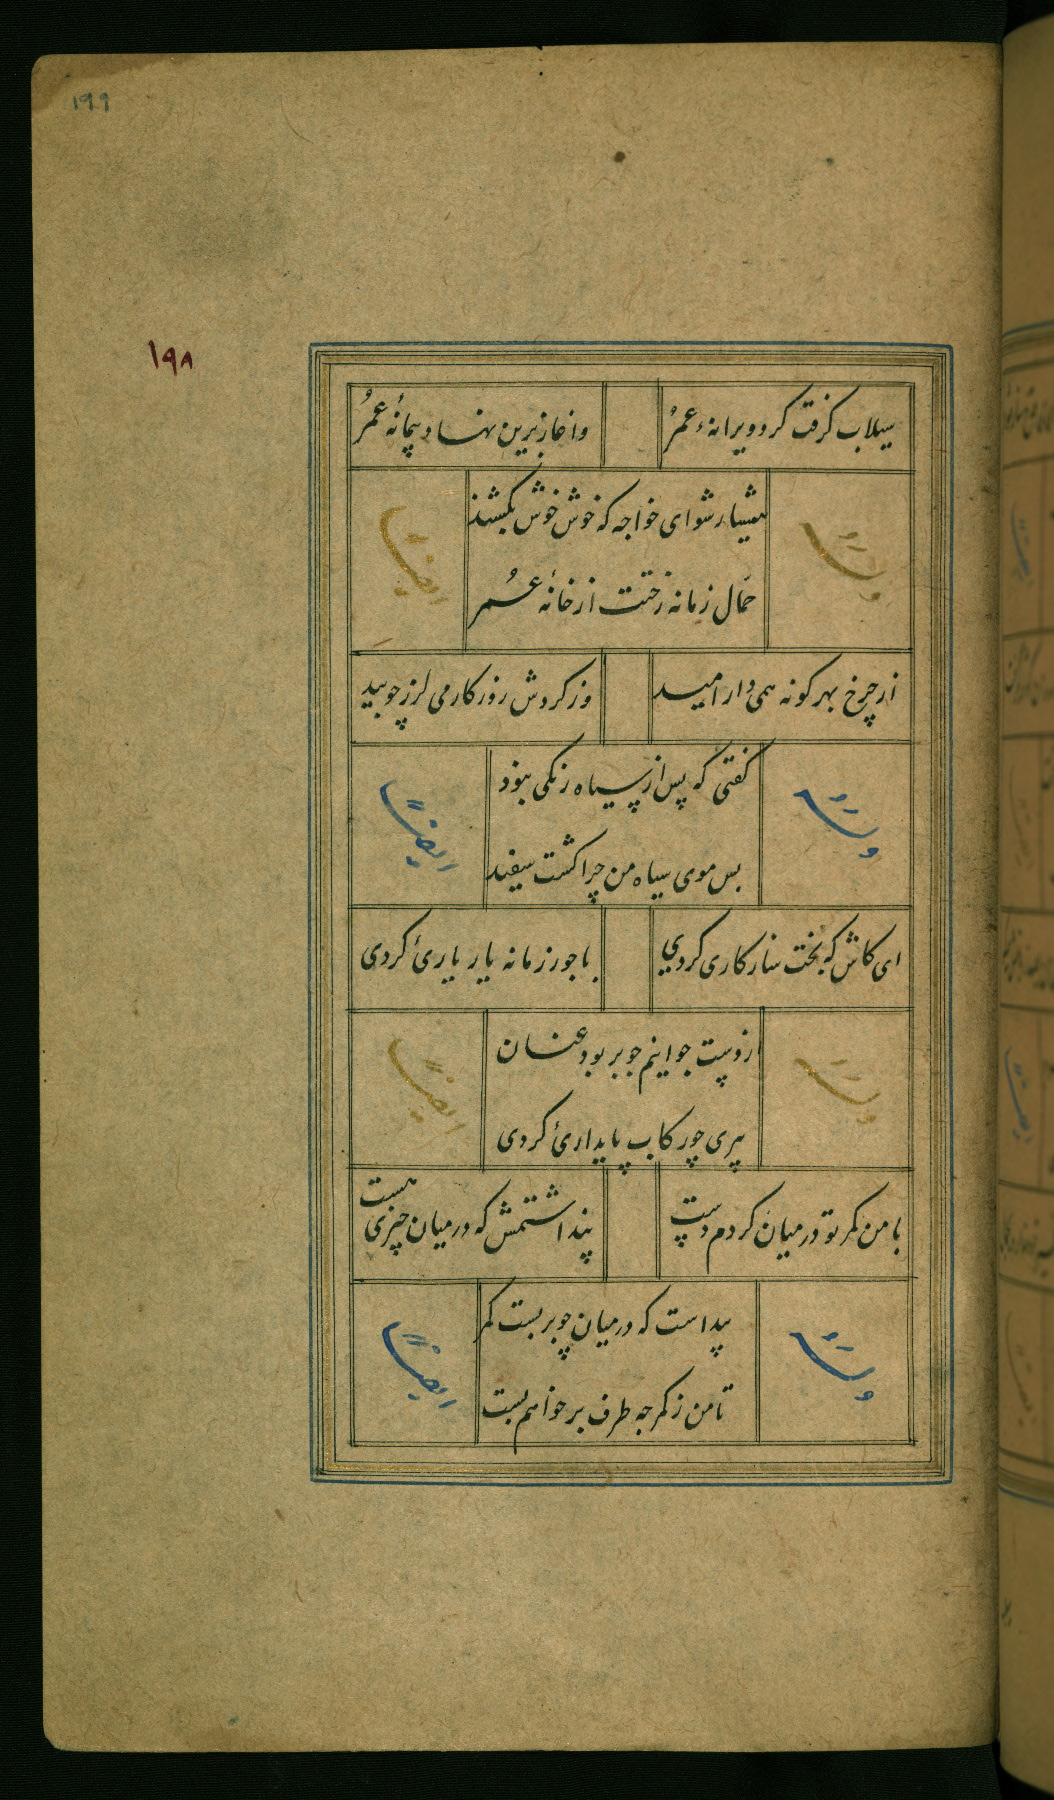 ۱۹۹
۱۹۸
سیلاب گرفت گرد ویرانهٔ عمر
واغاز پری نهاد پیمانهٔ عمر
هشیار شو ای خواجه که خوش خوش بکشد
حمال زمانه رخت از خانهٔ عمر
وله
ایضاً
از چرخ بهر کونه همی دار امید
وز کردش روزکار می لرز چو بید
کفتی که پس از سیاه رنکی نبود
پس موی سیاه من چرا کشت سفید
وله
ایضاً
ای کاش که بخت سازکاری کردی
با جور زمانه یار یاری کردی
از دست جوانیم چو بربود عنان
پیری چو رکاب پایداری کردی
وله
ایضاً
با من کمر تو در میان کردم دست
پنداشتمش که در میان چیزی هست
پیداست که در میان چو بربست کمر
تا من ز کمر چه طرف بر خواهم بست
وله
ایضاً